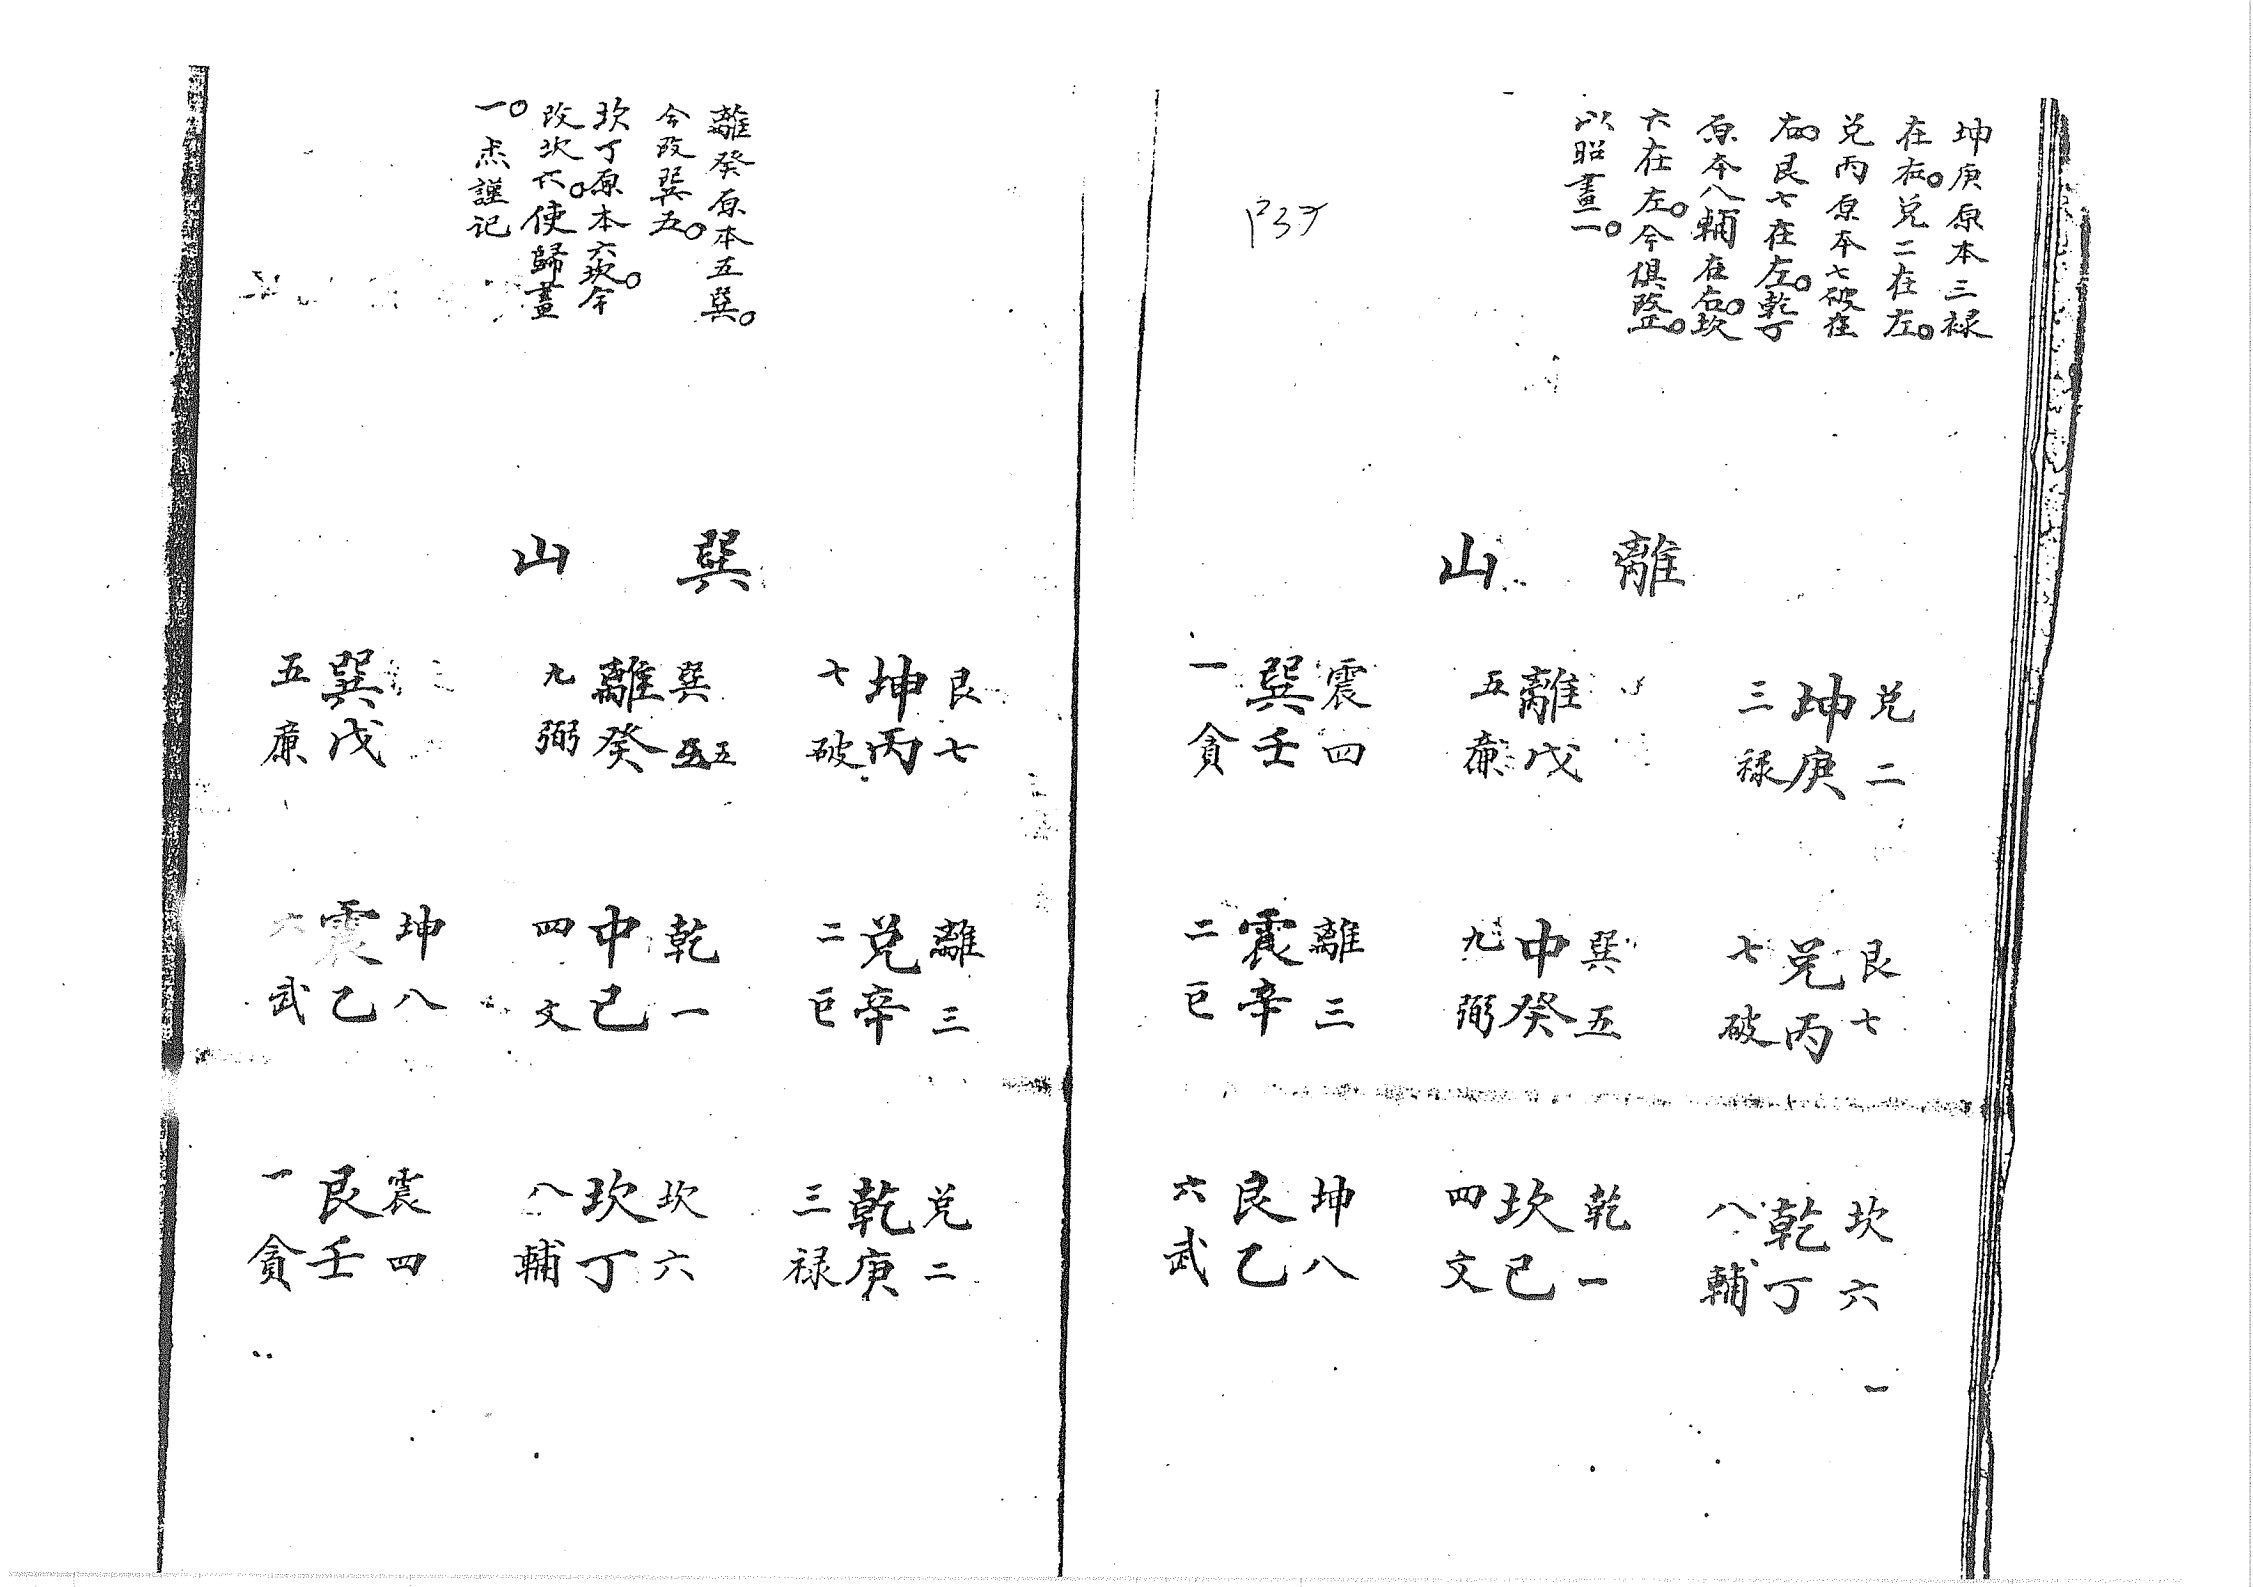 坤庚原本三禄
在右。兑二在左。
兑丙原本七破在
右。艮七在左。乾丁
原本八輔在右。坎
六在左。今俱改正。
以昭畫一。
離山
兑二
坤庚
三禄
離戊
五廉
震四
巽壬
一貪
艮七
兑丙
七破
巽五
中癸
九弼
離三
震辛
二巨
坎六
乾丁
八輔
乾一
坎己
四文
坤八
艮乙
六武
一
離癸原本五巽。
今改巽五。
坎丁原本六坎。今
改坎六。使歸畫
一。杰謹记
巽山
艮七
坤丙
七破
巽五
離癸
九弼
巽戊
五廉
離三
兑辛
二巨
乾一
中己
四文
坤八
震乙
六武
兑二
乾庚
三禄
坎六
坎丁
八輔
震四
艮壬
一貪